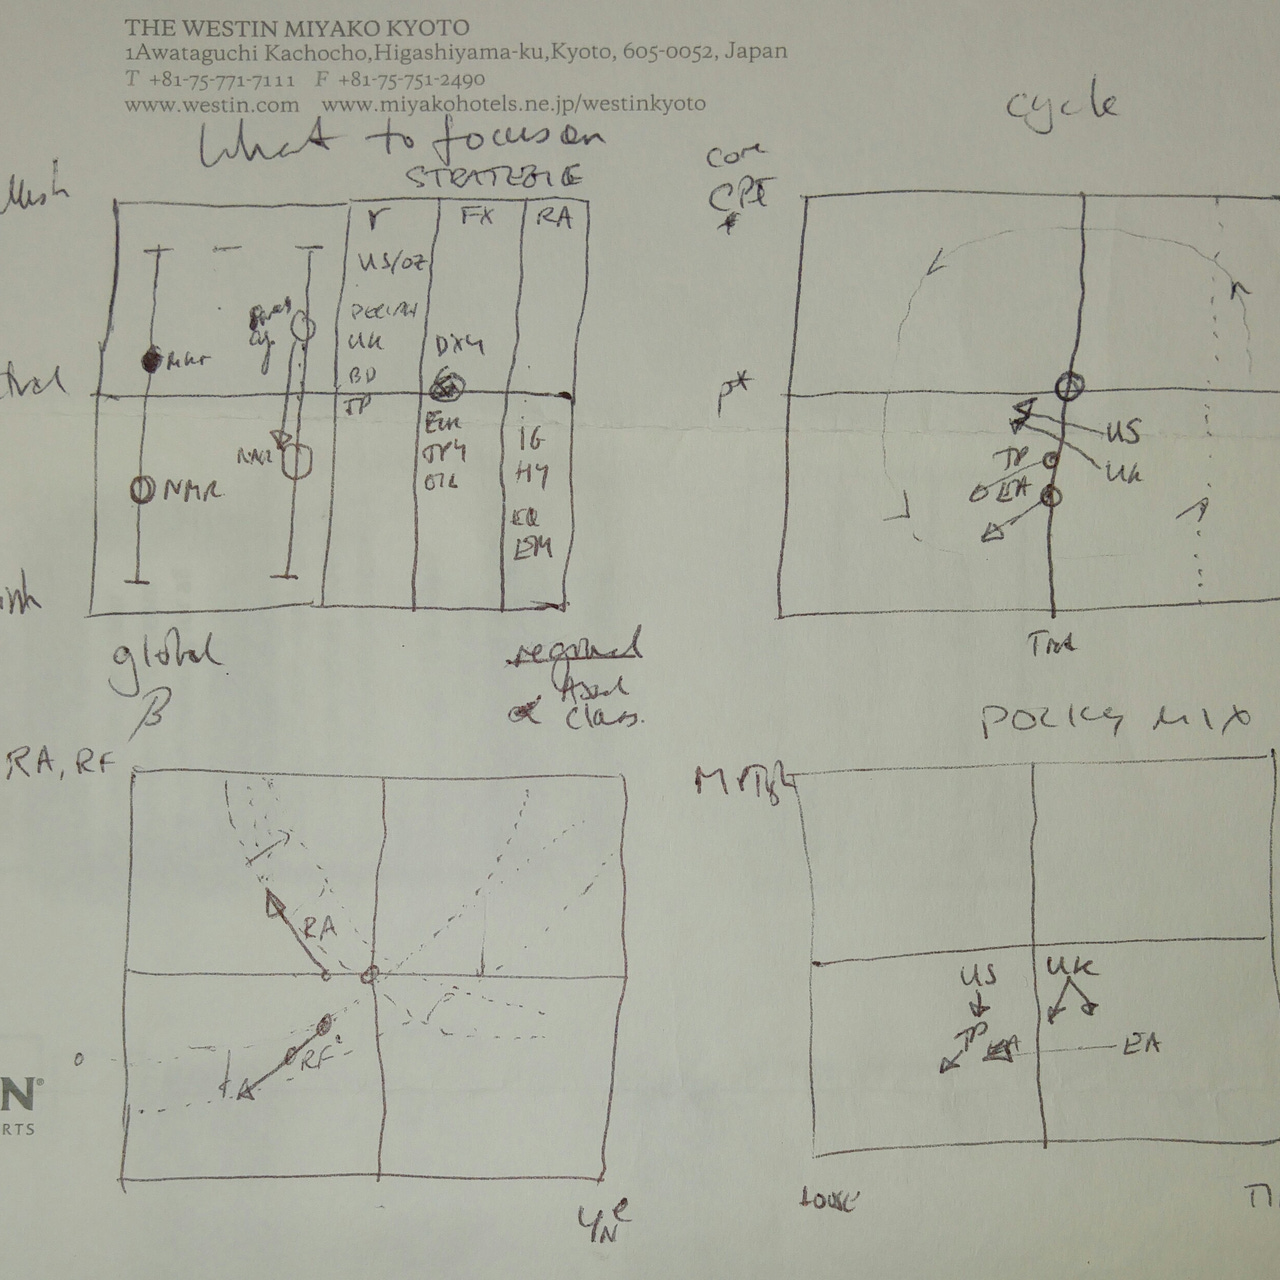 THE WESTIN MIYAKO KYOTO
1Awataguchi Kachocho,Higashiyama-ku,Kyoto, 605-0052, Japan
T +81-75-771-7111 F +81-75-751-2490
www.westin.com www.miyakohotels.ne.jp/westinkyoto
What to focus on
STRATEGIE
r FX RA
US/OZ
UK
BD
JP
DXY
EUR
JPY
IG
HY
EQ
EM
MKT
NMR
global
β
regional
α
Class.
cycle
Core
CPI
*
p*
US
UK
JP
EA
RA, RF
RA
RF
0
YNe
POLICY MIX
US
UK
JP
EA
EA
Loose
N®
RTS